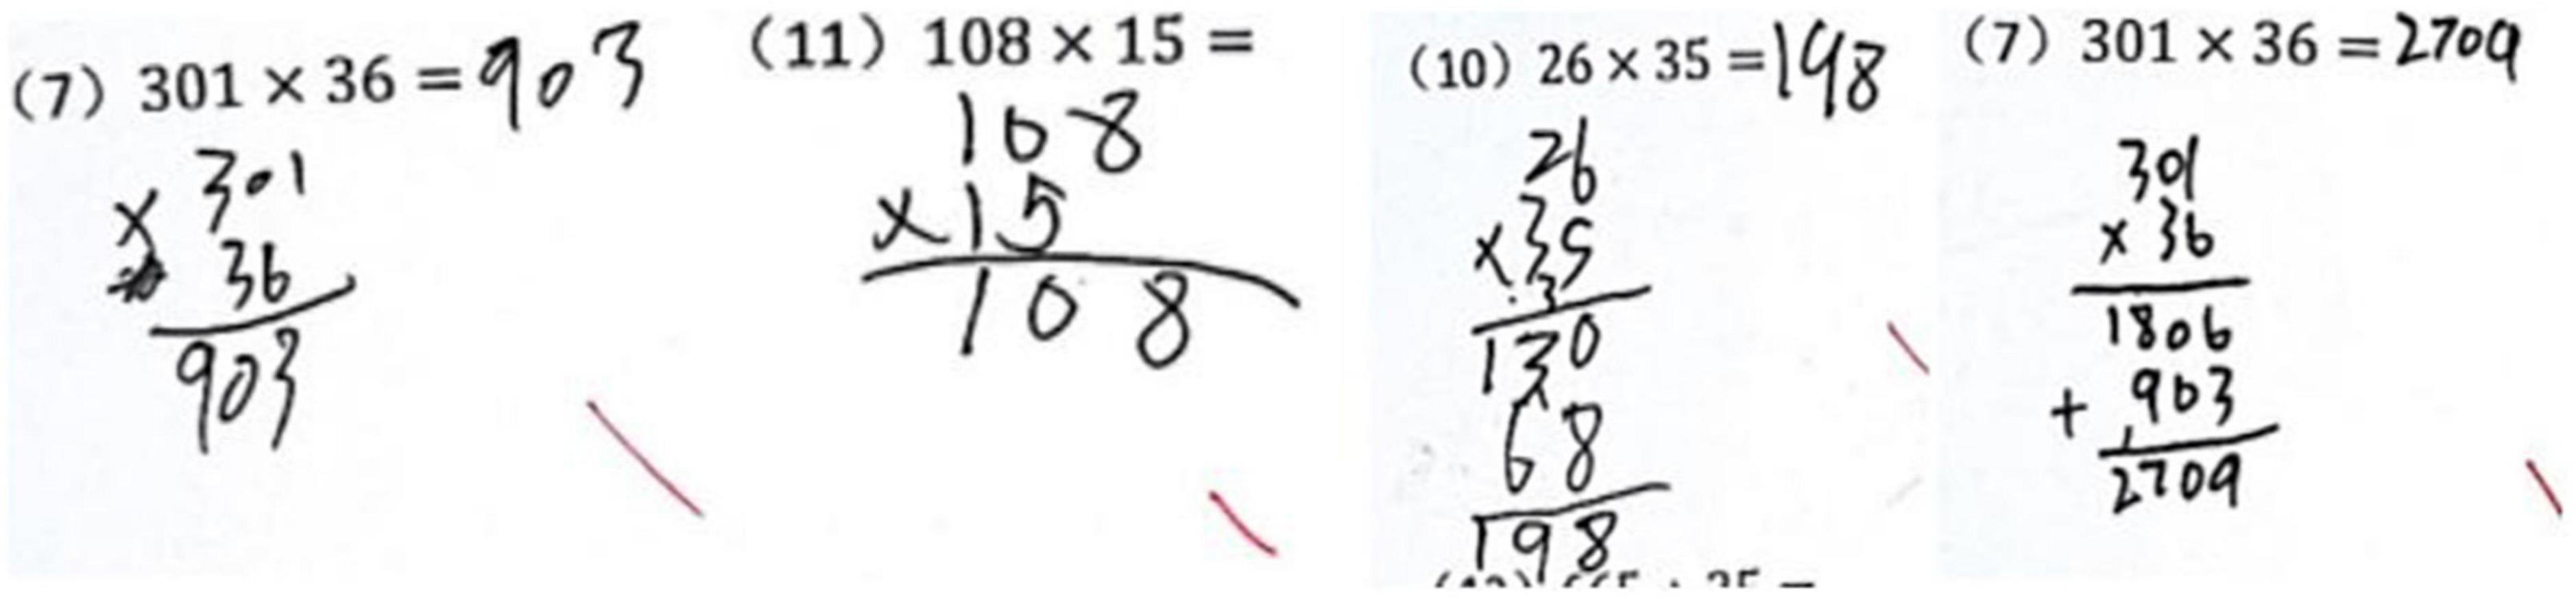 (7) 301 × 36 = 903
301
× 36
903
(11) 108 × 15 =
108
×15
108
(10) 26 × 35 = 198
26
×35
3
130
68
198
(7) 301 × 36 = 2709
301
× 36
1806
+ 903
1
2709